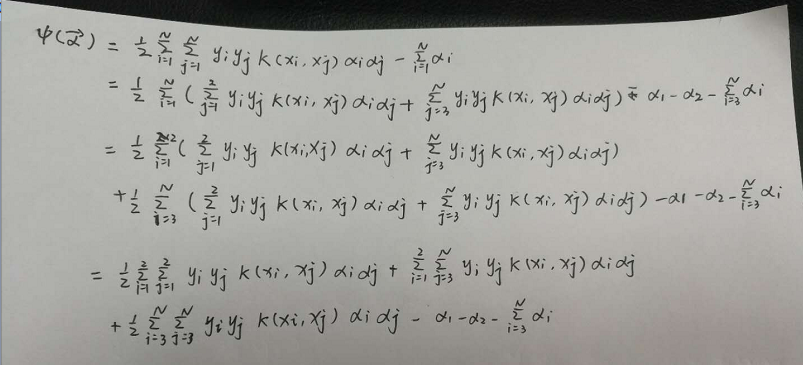 ψ(α⃗) = ½ Σ_{i=1}^{N} Σ_{j=1}^{N} yᵢyⱼ k(xᵢ, xⱼ) αᵢαⱼ - Σ_{i=1}^{N} αᵢ
= ½ Σ_{i=1}^{N} ( Σ_{j=1}^{2} yᵢyⱼ k(xᵢ, xⱼ) αᵢαⱼ + Σ_{j=3}^{N} yᵢyⱼ k(xᵢ, xⱼ) αᵢαⱼ ) - α₁ - α₂ - Σ_{i=3}^{N} αᵢ
= ½ Σ_{i=1}^{2} ( Σ_{j=1}^{2} yᵢyⱼ k(xᵢ, xⱼ) αᵢαⱼ + Σ_{j=3}^{N} yᵢyⱼ k(xᵢ, xⱼ) αᵢαⱼ )
+ ½ Σ_{i=3}^{N} ( Σ_{j=1}^{2} yᵢyⱼ k(xᵢ, xⱼ) αᵢαⱼ + Σ_{j=3}^{N} yᵢyⱼ k(xᵢ, xⱼ) αᵢαⱼ ) - α₁ - α₂ - Σ_{i=3}^{N} αᵢ
= ½ Σ_{i=1}^{2} Σ_{j=1}^{2} yᵢyⱼ k(xᵢ, xⱼ) αᵢαⱼ + Σ_{i=1}^{2} Σ_{j=3}^{N} yᵢyⱼ k(xᵢ, xⱼ) αᵢαⱼ
+ ½ Σ_{i=3}^{N} Σ_{j=3}^{N} yᵢyⱼ k(xᵢ, xⱼ) αᵢαⱼ - α₁ - α₂ - Σ_{i=3}^{N} αᵢ